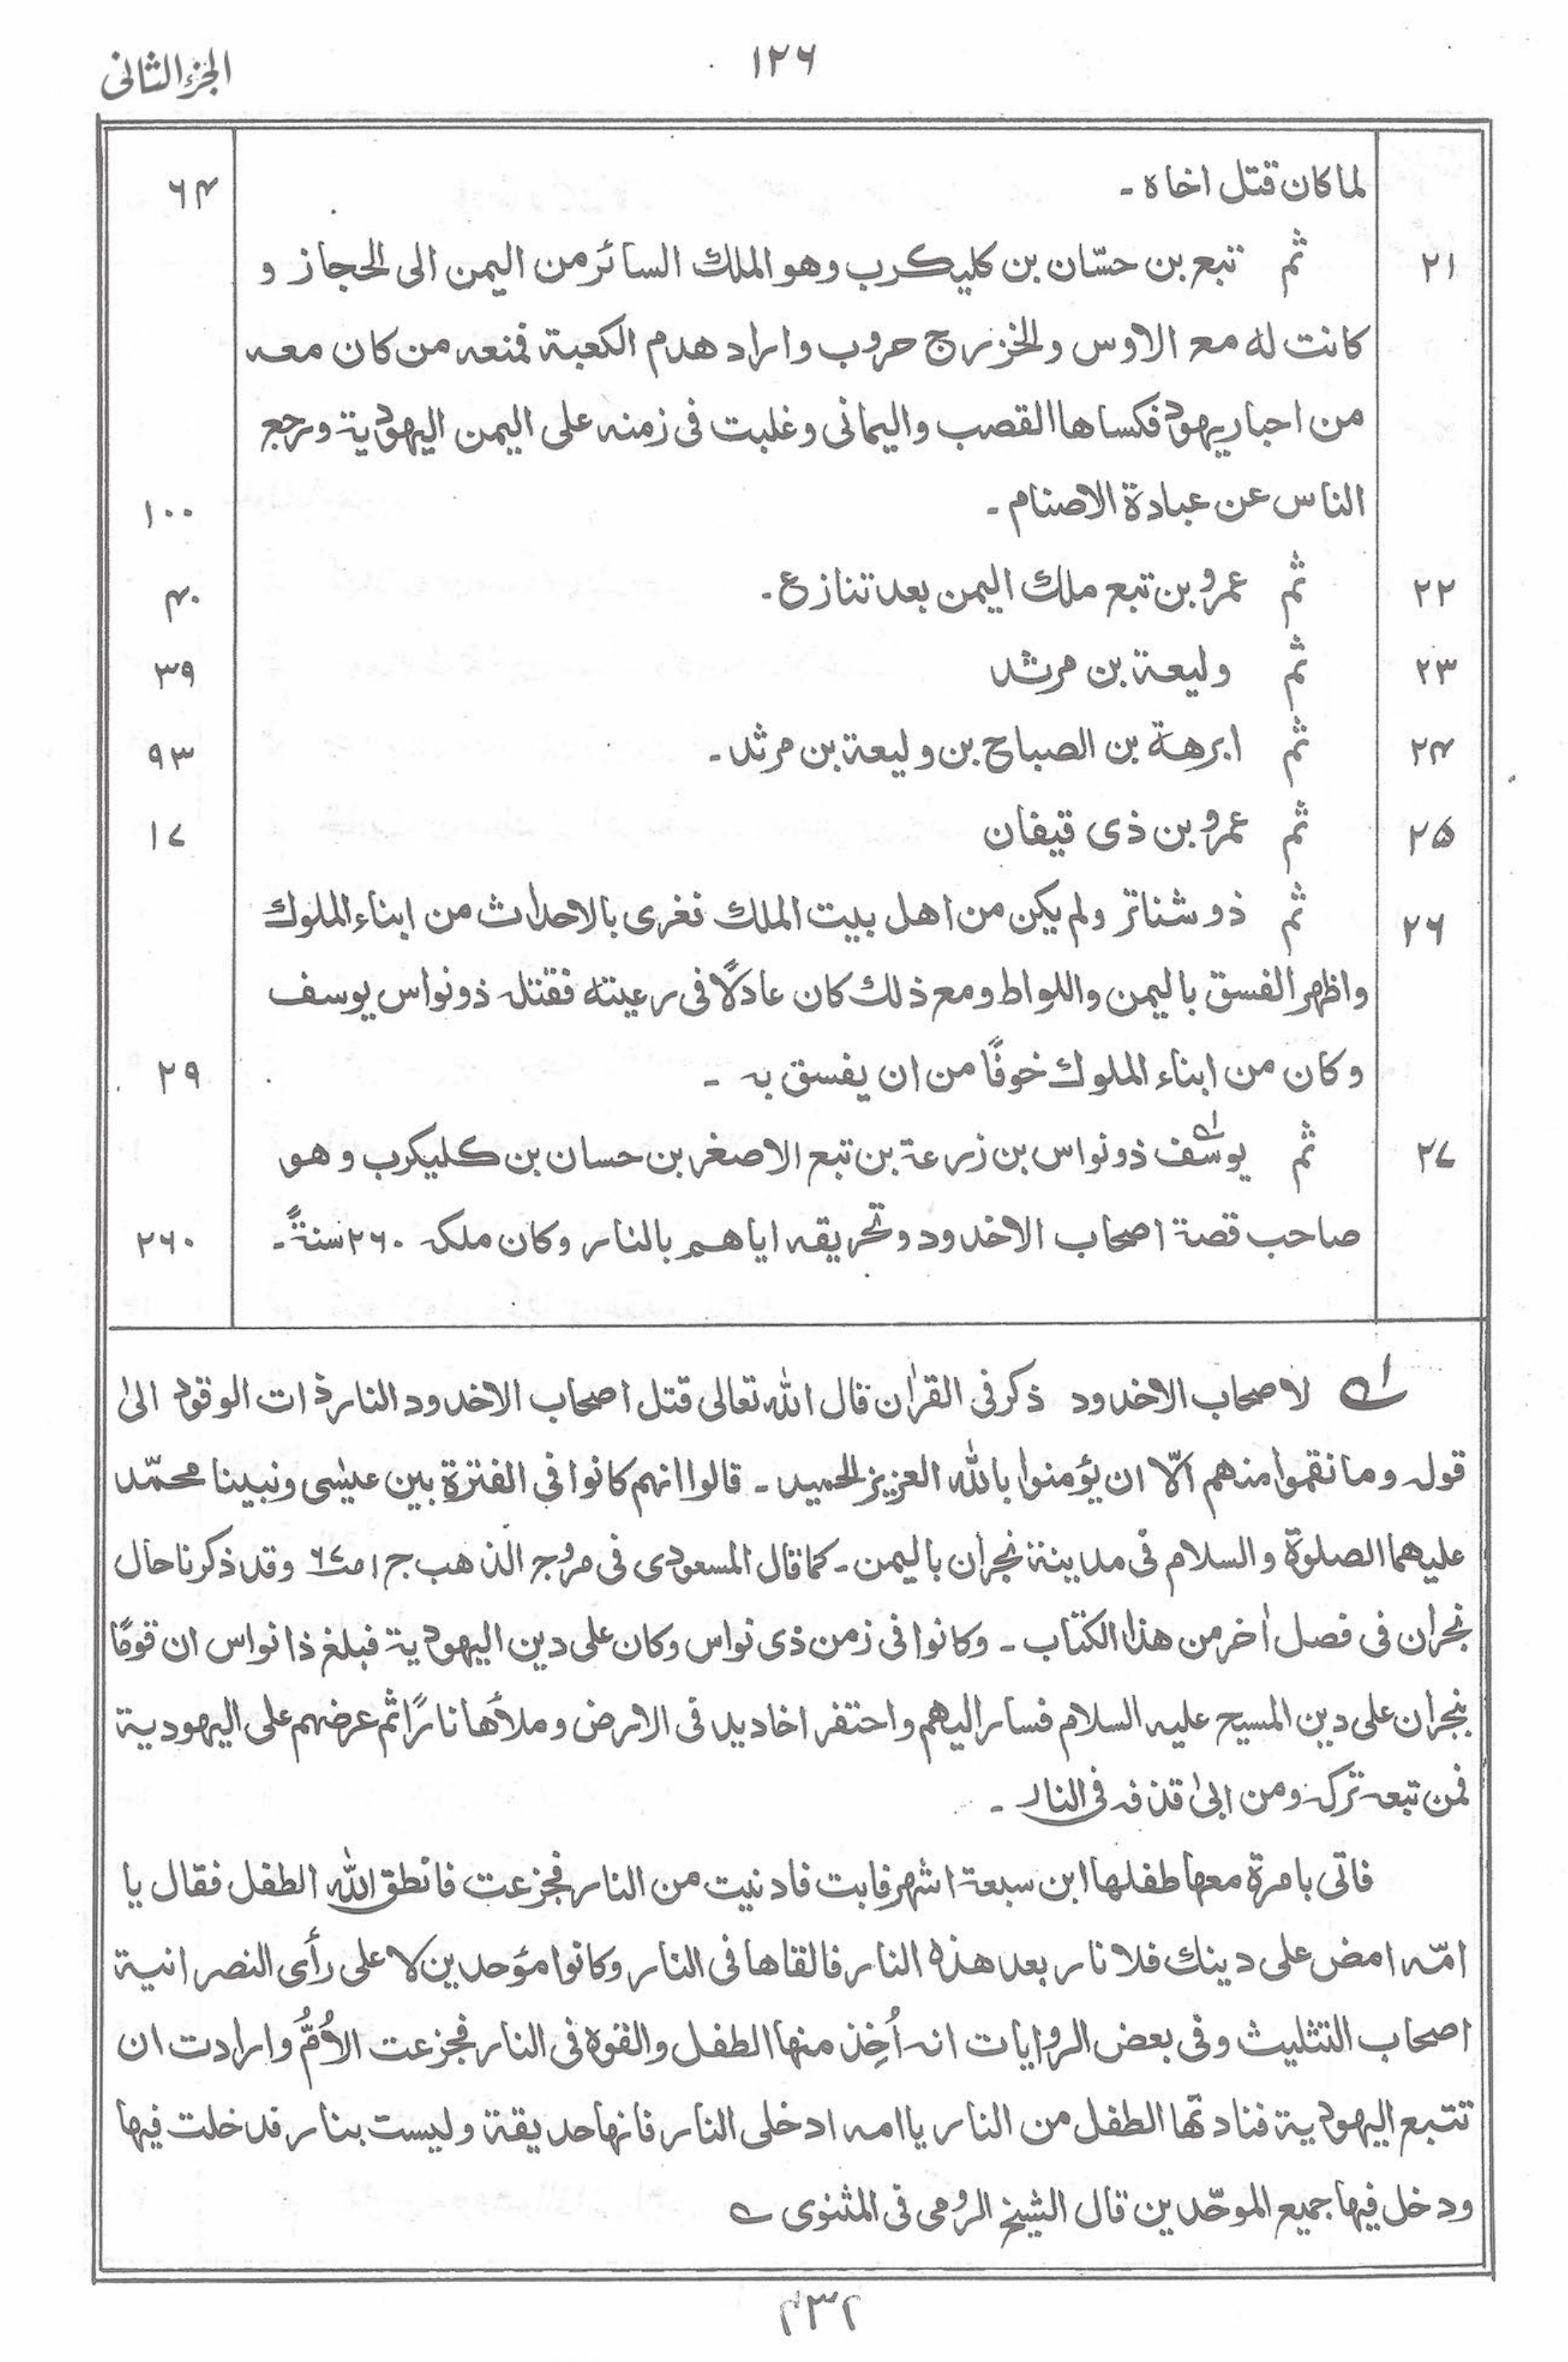 ١٢٦
الجزء الثانى
لما كان قتل اخاه ـ ٦٤
٢١ ثم تبع بن حسّان بن كليكرب وهو الملك السائر من اليمن الى الحجاز و
كانت له مع الاوس والخزرج حروب واراد هدم الكعبة فمنعه من كان معه
من احبار يهود فكساها القصب واليمانى وغلبت فى زمنه على اليمن اليهودية ورجع
الناس عن عبادة الاصنام ـ ١٠٠
٢٢ ثم عمرو بن تبع ملك اليمن بعد تنازع ـ ٤٠
٢٣ ثم وليعة بن مرشد ٣٩
٢٤ ثم ابرهة بن الصباح بن وليعة بن مرثد ـ ٩٣
٢٥ ثم عمرو بن ذى قيفان ١٧
٢٦ ثم ذو شناتر ولم يكن من اهل بيت الملك فغرى بالاحداث من ابناء الملوك
واظهر الفسق باليمن واللواط ومع ذلك كان عادلًا فى رعيته فقتله ذو نواس يوسف
وكان من ابناء الملوك خوفًا من ان يفسق به ـ ٢٩
٢٧ ثم يوسف ذو نواس بن زرعة بن تبع الاصغر بن حسان بن كليكرب وهو
صاحب قصة اصحاب الاخدود وتحريقه اياهم بالنار وكان ملكه ٢٦٠ سنةً ـ ٢٦٠
لاصحاب الاخدود ذكر فى القرأن قال الله تعالى قتل اصحاب الاخدود النار ذات الوقود الىٰ
قوله وما نقموا منهم الّا ان يؤمنوا بالله العزيز الحميد ـ قالوا انهم كانوا فى الفترة بين عيسٰى ونبينا محمّد
عليهما الصلوٰة والسلام فى مدينة نجران باليمن ـ كما قال المسعودى فى مروج الذهب ج ١ وقد ذكرنا حال
نجران فى فصل اٰخر من هذا الكتاب ـ وكانوا فى زمن ذى نواس وكان على دين اليهودية فبلغ ذا نواس ان قومًا
بنجران على دين المسيح عليه السلام فسار اليهم واحتفر اخاديد فى الارض وملأها نارًا ثم عرضهم على اليهودية
فمن تبعه تركه ومن ابىٰ قذفه فى النار ـ
فاتى بامرة معها طفلها ابن سبعة اشهر فابت فادنيت من النار فجزعت فانطق الله الطفل فقال يا
امّه امض على دينك فلا نار بعد هذه النار فالقاها فى النار وكانوا مؤحدين لا على رأى النصرانية
اصحاب التثليث وفى بعض الروايات انه أُخِذ منها الطفل والقوه فى النار فجزعت الأُمُّ وارادت ان
تتبع اليهودية فنادتها الطفل من النار يا امه ادخلى النار فانها حديقة وليست بنار فدخلت فيها
ودخل فيها جميع الموحّدين قال الشيخ الرومى فى المثنوى ؎
٤٣٢